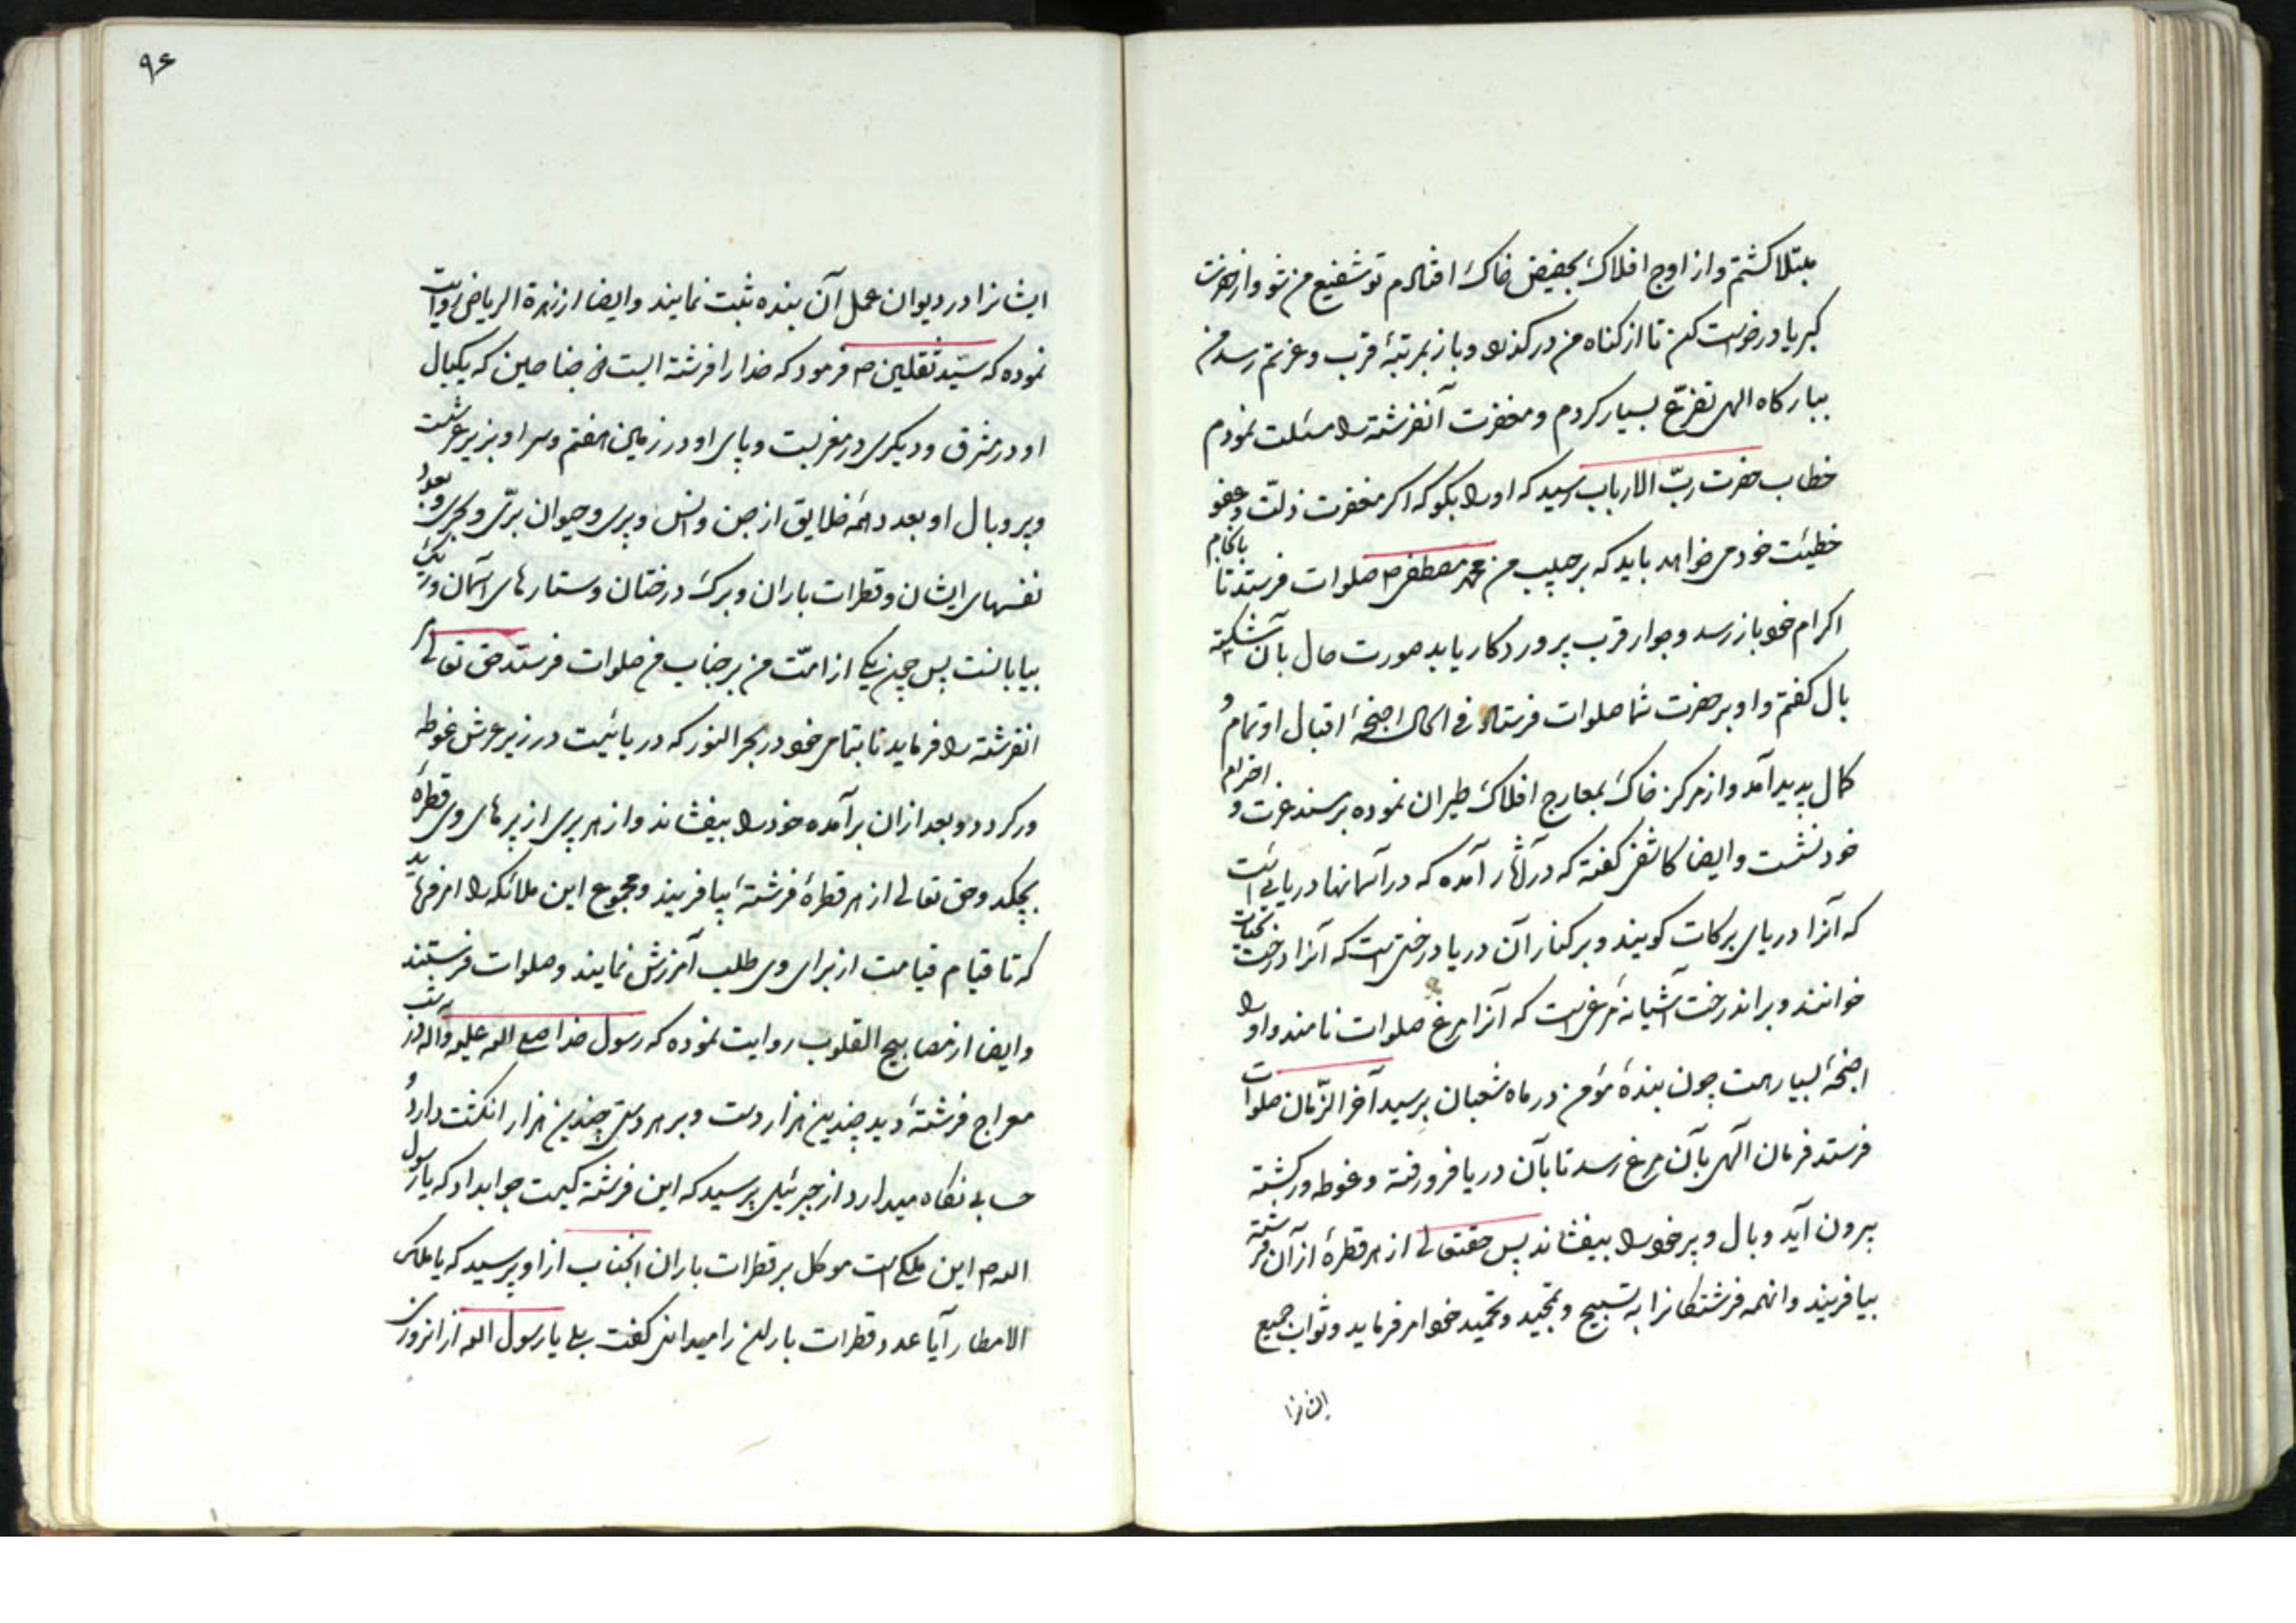 مبتلا کشتم و از اوج افلاک بحضیض خاک افتادم تو شفیع من شو و از حضرت
کبریا درخواست کن تا از کناه من درکذرد و باز بمرتبهٔ قرب و عزتم رسد من
ببارکاه الهی تضرّع بسیار کردم و مغفرت آنفرشته را مسئلت نمودم
خطاب حضرت ربّ الارباب رسید که او را بکو که اکر مغفرت ذلّت و عفو
خطیئت خود می خواهد باید که بر حبیب من محمد مصطفی ص صلوات فرستد تا بانجام
اکرام خود باز رسد و جوار قرب پروردکار یابد صورت حال بآن شکسته
بال کفتم و او بر حضرت شما صلوات فرستاد فی الحال اجنحهٔ اقبال او تمام و
کمال پدید آمد و از مرکز خاک بمعارج افلاک طیران نموده بر مسند عزت و احترام
خود نشست و ایضا کاشفی کفته که در آثار آمده که در آسمانها دریائی است
که آنرا دریای برکات کویند و بر کنار آن دریا درختی است که آنرا درخت تحیات
خوانند و بر اندرخت آشیانهٔ مرغی است که آنرا مرغ صلوات نامند و او را
اجنحهٔ بسیار است چون بندهٔ مؤمن در ماه شعبان بر سید آخر الزّمان صلوات
فرستد فرمان آلهی بآن مرغ رسد تا بآن دریا فرو رفته و غوطه ور کشته
بیرون آید و بال و پر خود را بیفشاند پس حقتعالی از هر قطرهٔ از آن فرشته
بیافریند و انهمه فرشتکانرا به تسبیح و تمجید و تحمید خود امر فرماید و ثواب جمیع
ایشانرا
۹۶
ایشانرا در دیوان عمل آن بنده ثبت نمایند و ایضا از زهرة الریاض روایت
نموده که سیّد ثقلین ص فرمود که خدا را فرشته ایست که یکبال
او در مشرق و دیکری در مغربست و پای او در زمین هفتم و سر او بزیر عرشست
و پر و بال او بعدد همه خلایق از جن و انس و پری و حیوان برّی و بحری و بعدد
نفسهای ایشان و قطرات باران و برک درختان و ستارهای آسمان و ریک
بیابانست پس چون یکی از امّت من بر جناب من صلوات فرستد حق تعالی
انفرشته را فرماید تا بتمامی خود در بحر النور که دریائیست در زیر عرش غوطه
ور کردد و بعد ازان برآمده خود را بیفشاند و از هر پری از پرهای وی قطرهٔ
بچکد و حق تعالی از هر قطرهٔ فرشتهٔ بیافریند و مجموع این ملائکه را امر فرماید
که تا قیام قیامت از برای وی طلب آمرزش نمایند و صلوات فرستند
و ایضا از مصابیح القلوب روایت نموده که رسول خدا صلی الله علیه و آله در شب
معراج فرشتهٔ دید چندین هزار دست و بر هر دستی چندین هزار انکشت دارد و
حسابی نکاه میدارد از جبرئیل پرسید که این فرشته کیست جوابداد که یا رسول
الله ص این ملکی است موکل بر قطرات باران انجناب از او پرسید که یا ملک
الامطار آیا عدد قطرات باران را میدانی کفت بلی یا رسول الله از انروزی